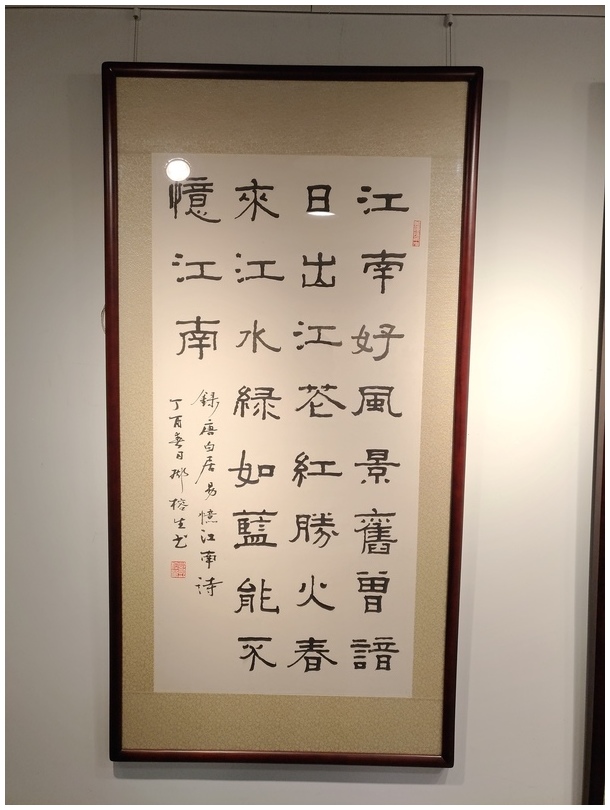 江南好風景舊曾諳
日出江花紅勝火春
來江水緑如藍能不
憶江南
録唐白居易憶江南詩
丁酉春日鄉榕生书